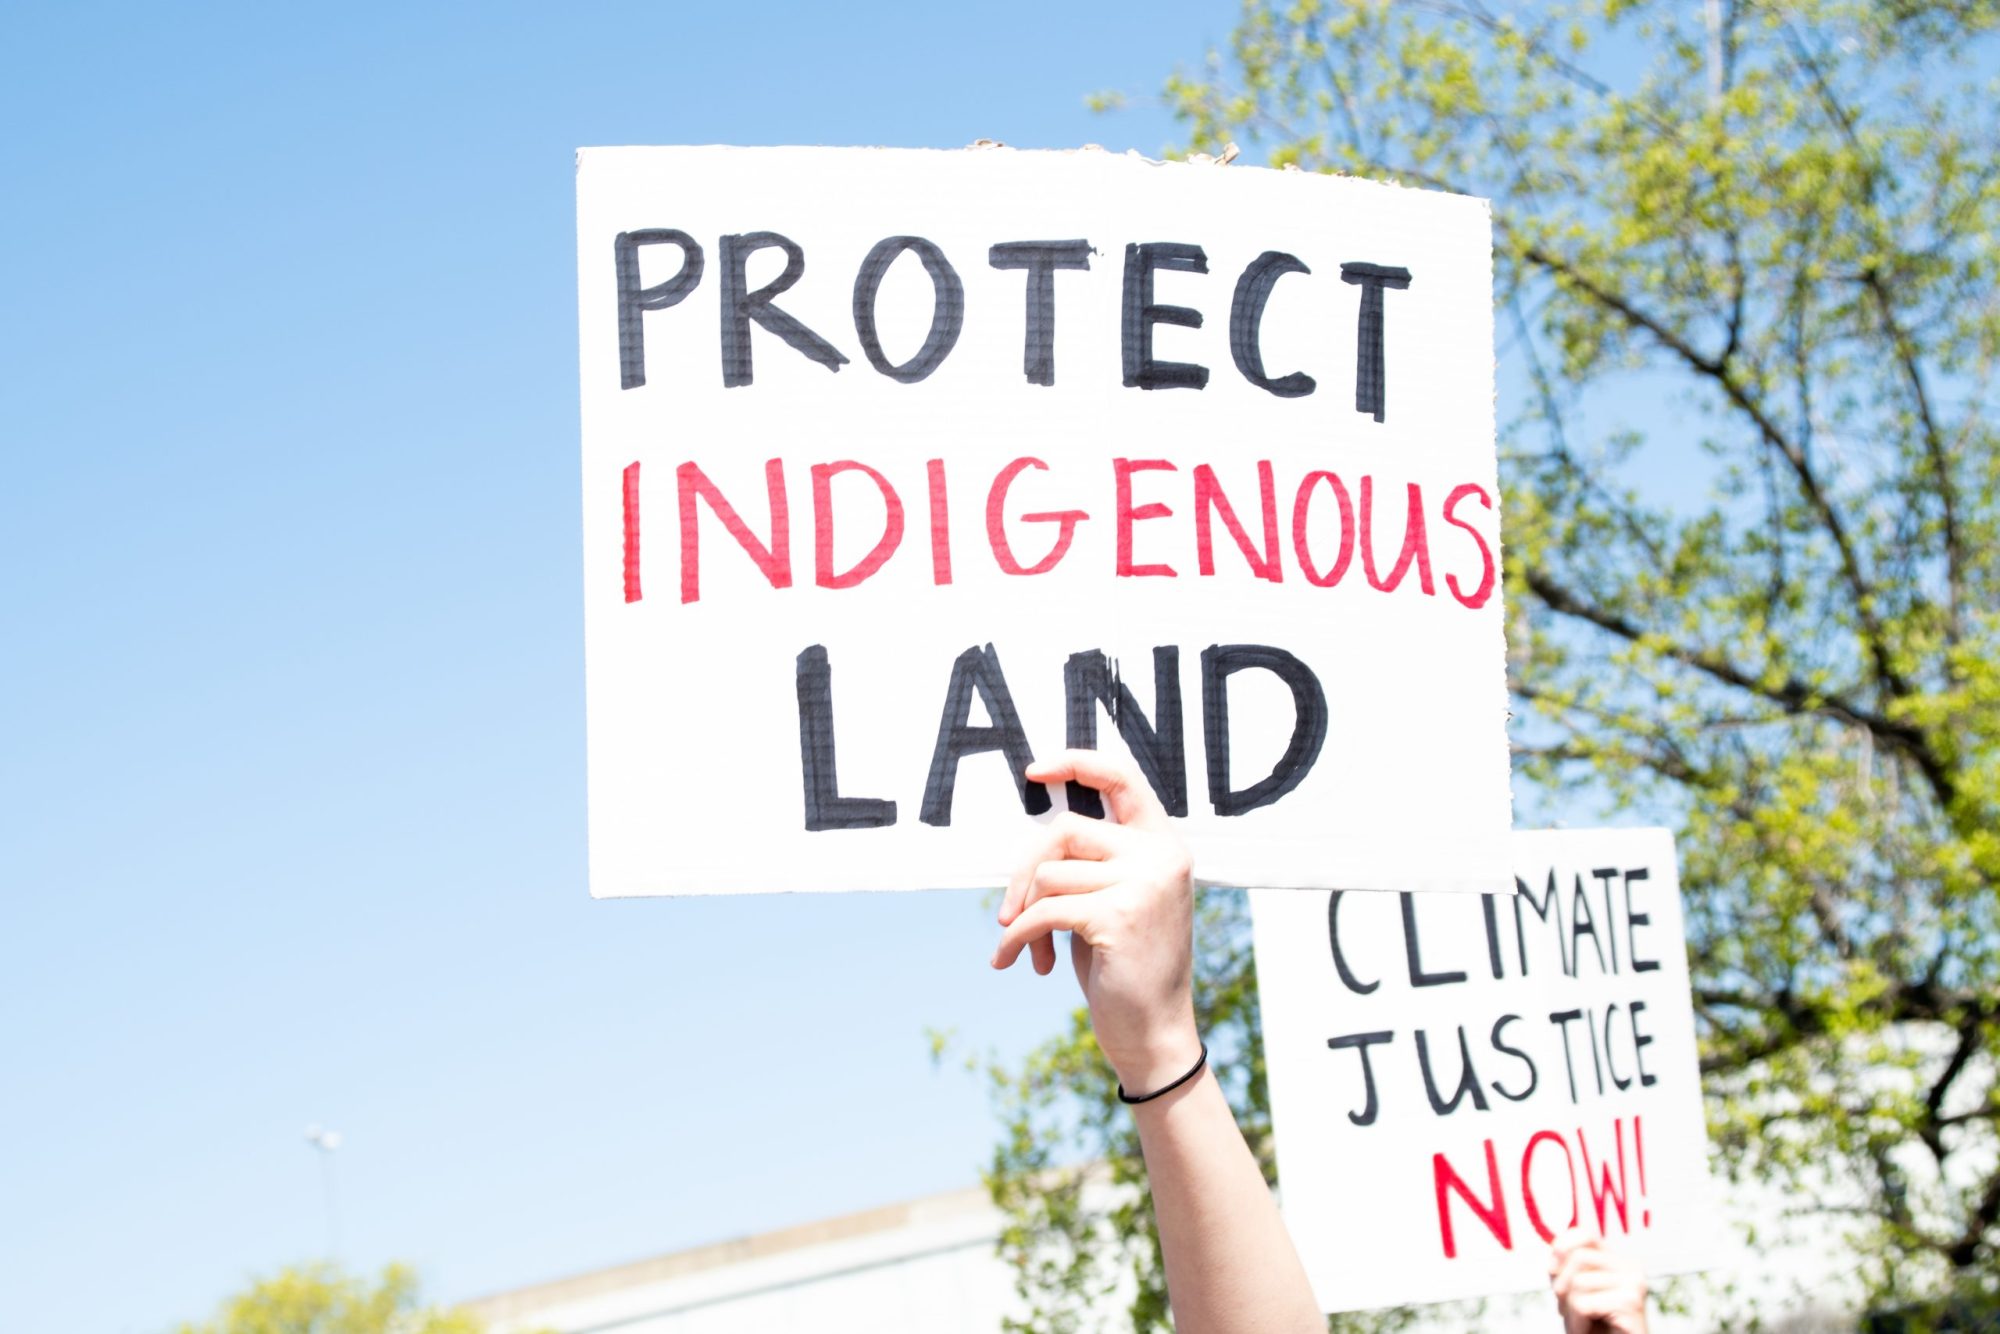 PROTECT
INDIGENOUS
LAND
CLIMATE
JUSTICE
NOW!